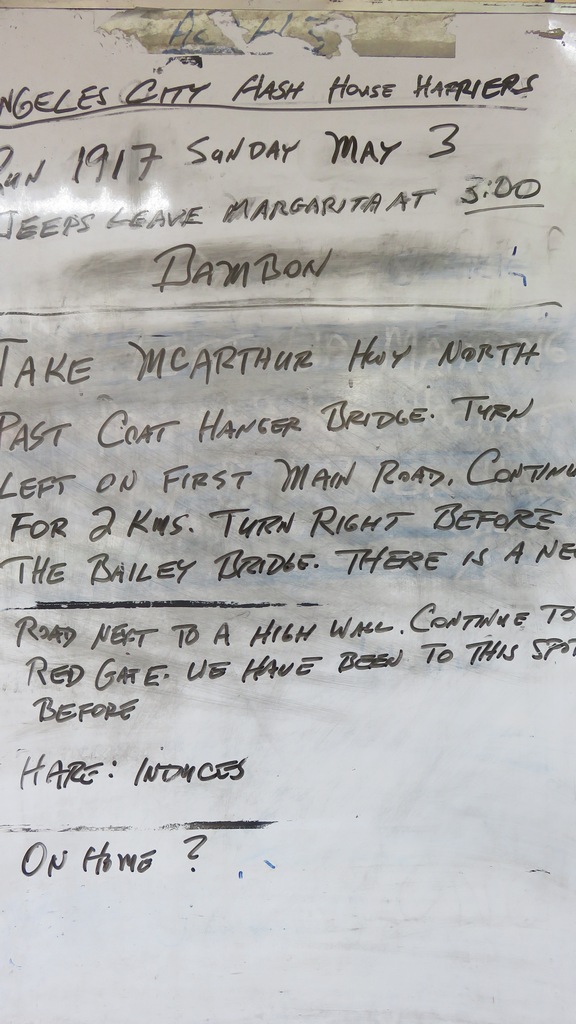 NGELES CITY HASH HOUSE HARRIERS
RUN 1917 SUNDAY MAY 3
JEEPS LEAVE MARGARITA AT 3:00
BAMBON
TAKE MCARTHUR HWY NORTH
PAST COAT HANGER BRIDGE. TURN
LEFT ON FIRST MAIN ROAD. CONTINU
FOR 2 KMS. TURN RIGHT BEFORE
THE BAILEY BRIDGE. THERE IS A NE
ROAD NEXT TO A HIGH WALL. CONTINUE TO
RED GATE. WE HAVE BEEN TO THIS SPOT
BEFORE
HARE: INDUCES
ON HOME ?